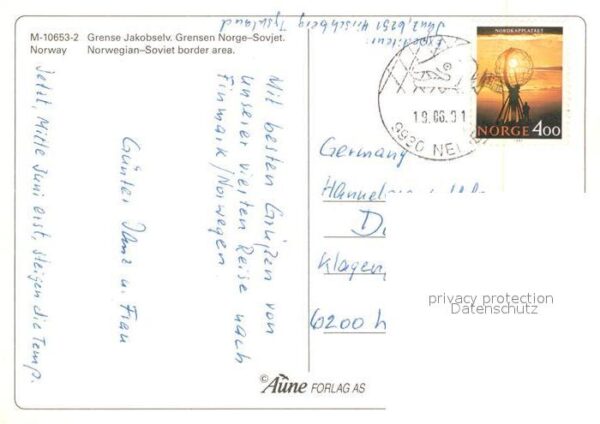 M-10653-2 Grense Jakobselv. Grensen Norge–Sovjet.
Norway Norwegian–Soviet border area.
Expediteur:
6251 Hirschberg Tyskland
NORDKAPPLATÅET
NORGE 4.00
19.06.91
9930 NEI
Mit besten Grüßen von
unserer vierten Reise nach
Finmark/Norwegen.
Günter u. Frau
Jetzt, Mitte Juni erst, steigen die Temp.
Germany
6200
privacy protection
Datenschutz
© Aune FORLAG AS